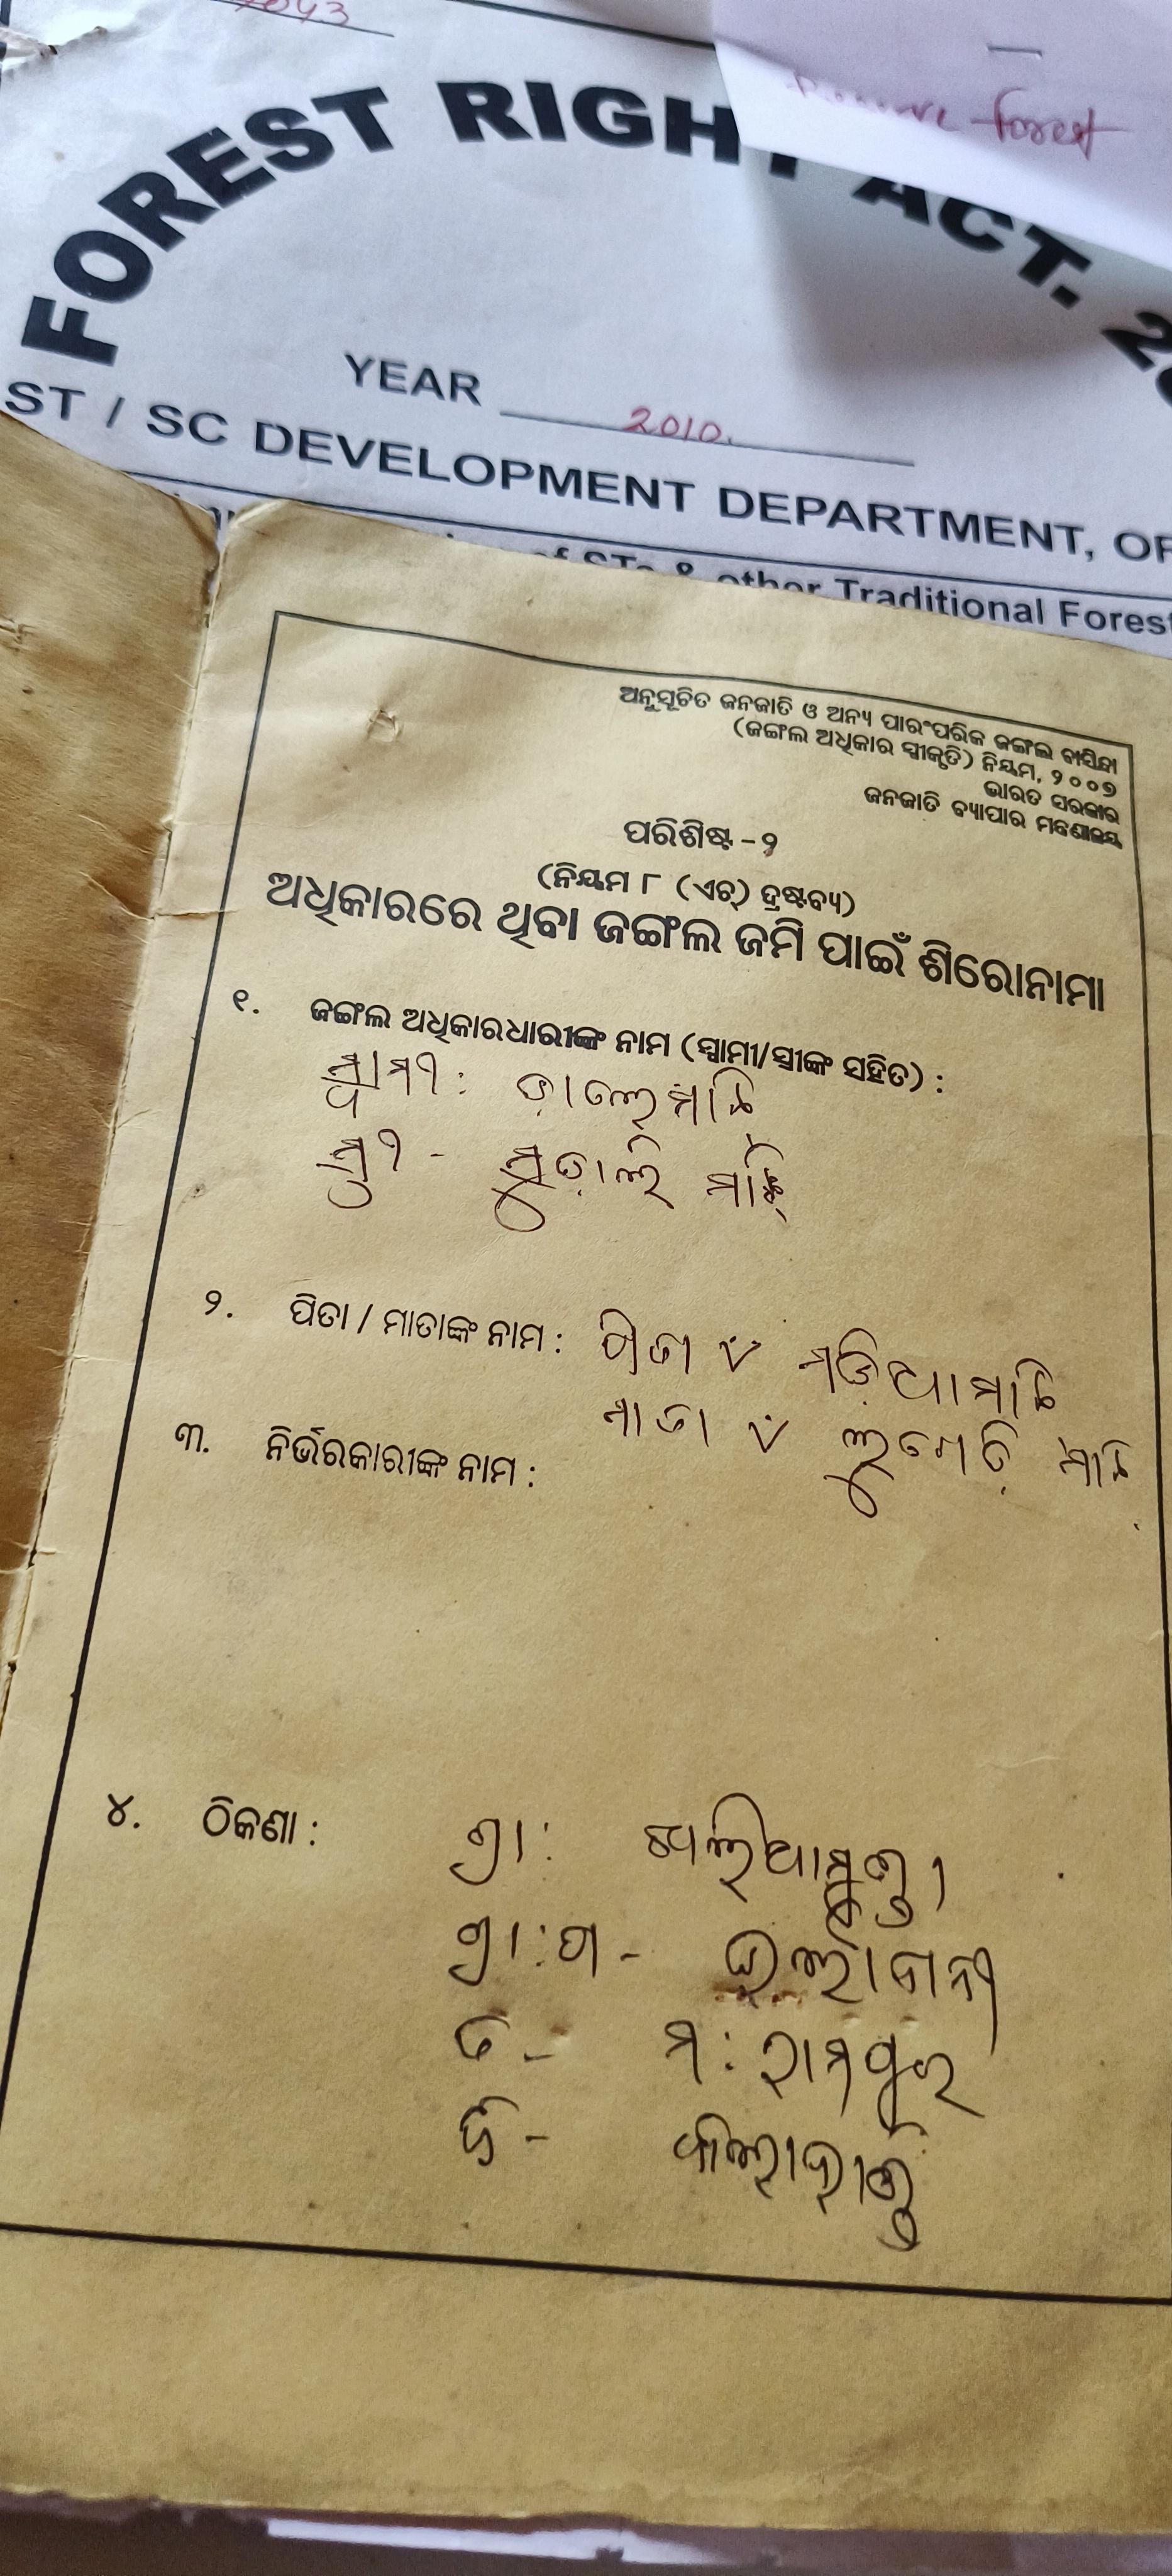 7043
Forest
FOREST RIGHT ACT. 20
YEAR 2010.
ST / SC DEVELOPMENT DEPARTMENT, OR
of STs & other Traditional Forest
ଅନୁସୂଚିତ ଜନଜାତି ଓ ଅନ୍ୟ ପାରଂପରିକ ଜଙ୍ଗଲ ବାସିନ୍ଦା
(ଜଙ୍ଗଲ ଅଧିକାର ସ୍ୱୀକୃତି) ନିୟମ, ୨୦୦୭
ଭାରତ ସରକାର
ଜନଜାତି ବ୍ୟାପାର ମନ୍ତ୍ରଣାଳୟ
ପରିଶିଷ୍ଟ - ୨
(ନିୟମ ୮ (ଏଚ୍) ଦ୍ରଷ୍ଟବ୍ୟ)
ଅଧିକାରରେ ଥିବା ଜଙ୍ଗଲ ଜମି ପାଇଁ ଶିରୋନାମା
୧. ଜଙ୍ଗଲ ଅଧିକାରଧାରୀଙ୍କ ନାମ (ସ୍ୱାମୀ/ସ୍ତ୍ରୀଙ୍କ ସହିତ) :
ସ୍ୱାମୀ : ଡ଼ାଲେ ମାଝି
ସ୍ତ୍ରୀ - ସୁଡ଼ାଲି ମାଝି
୨. ପିତା / ମାତାଙ୍କ ନାମ : ପିତା ମଡ଼ିଆ ମାଝି
ମାତା ମାଝି
୩. ନିର୍ଭରକାରୀଙ୍କ ନାମ :
୪. ଠିକଣା : ଗ୍ରା : ଖଲିଆମୁଣ୍ଡା
ଗ୍ରା : ପ -
ତ - ମ : ରାମପୁର
ଜି - କଳାହାଣ୍ଡି